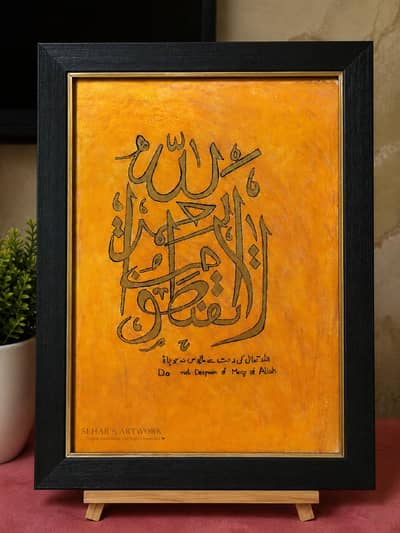 لا تقنطوا من رحمة الله
اللہ تعالٰی کی رحمت سے مایوس نہ ہو جاؤ
Do not Despair of Mercy of Allah
SEHAR'S ARTWORK